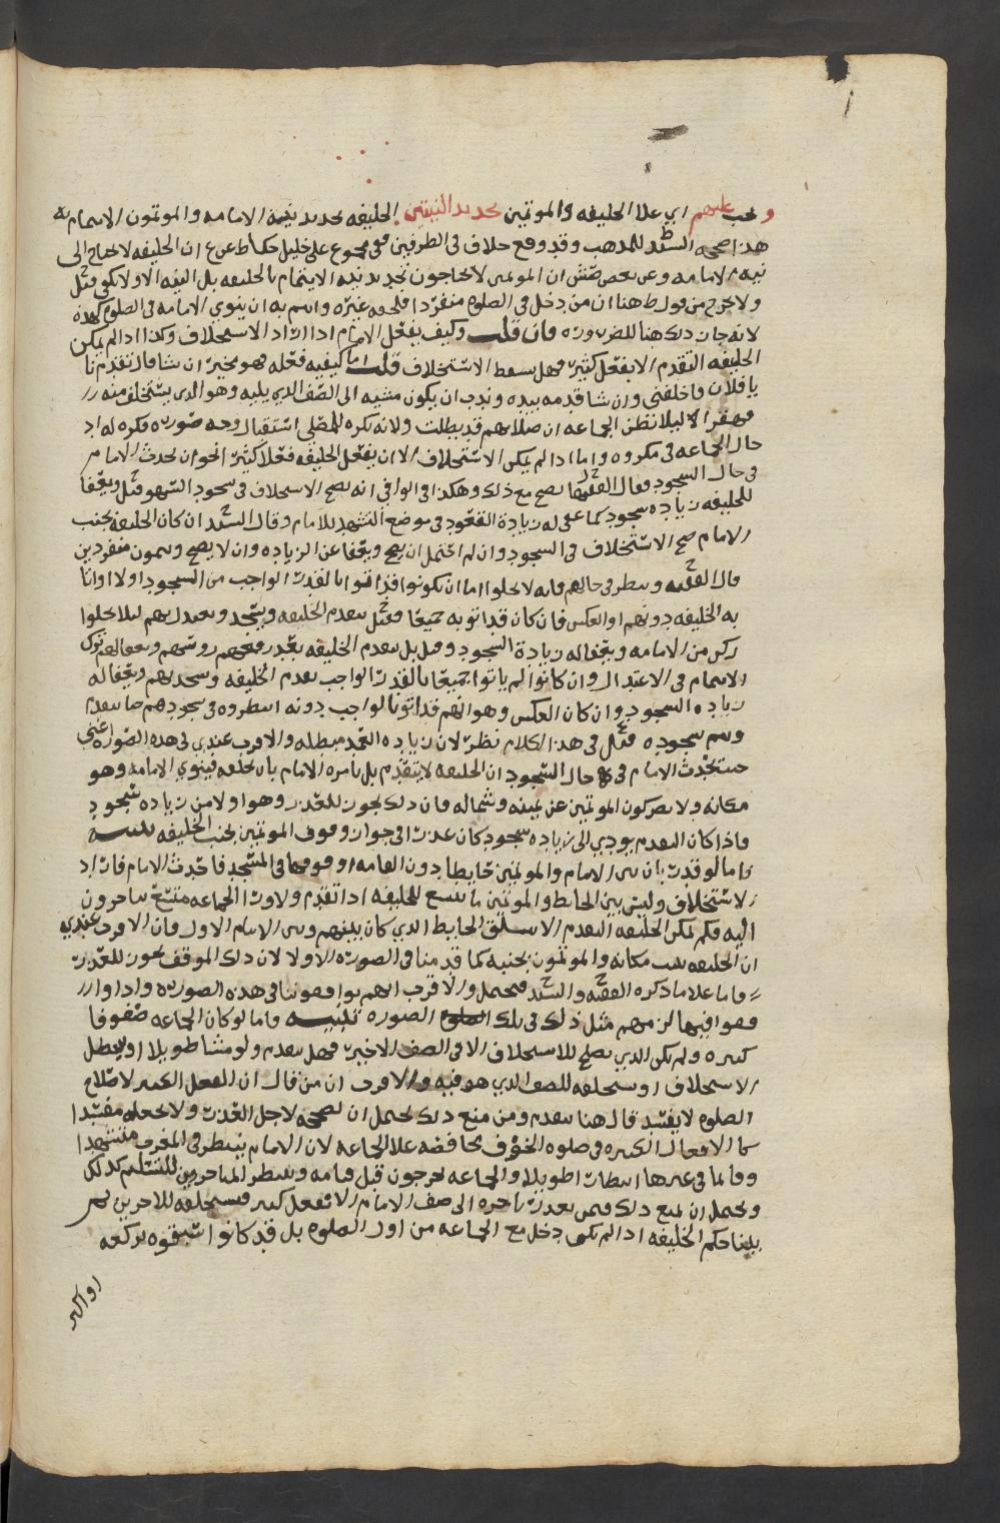 و يجب عليهم اي علا الخليفه والموتمين تجديد النيتين الخليفه تجديد نية الامامه والموتمون الايتمام به
هذا صححه السيد للمذهب وقد وقع خلاف في الطرفين ففي مجموع علي خليل حكاه ط عن ع ان الخليفه لا يحتاج الى
نيه الامامه وعن بعض ان الموتمين لا يحتاجون تجديد نيه الايتمام بالخليفه بل النيه الاولا تكفي قيل
ولا يخرج من قول ط هنا ان من دخل في الصلوه منفردا فلحقه غيره وايتم به ان ينوي الامامه في الصلوه كهذه
لانه جاز ذلك هنا للضروره فان قلت وكيف يفعل الامام اذا اراد الاستخلاف وكذا اذا لم يمكن
الخليفه التقدم الا بفعل كثير فهل يسقط الاستخلاف قلت اما كيفيه فعله فهو مخير ان شا قال تقدم بنا
يا فلان واخلفني وان شا قدمه بيده وندب ان يكون مشيه الى الصف الذي يليه وهو الذي يستخلف منه
قهقرا لئلا يظن الجماعه ان صلاتهم قد بطلت ولانه يكره للمصلي استقبال وجه صوره فكره له اذ
حال الجماعه في مكروه واما اذا لم يمكن الاستخلاف الا ان يفعل الخليفه فعلا كثيرا نحو ان يحدث الامام
في حال السجود فقال الفقيه يصح مع ذلك وهكذا في الوافي انه يصح الاستخلاف في سجود السهو قيل ويعفا
للخليفه زياده سجود كما عفي له زيادة القعود في موضع التشهد للامام وقال السيد ان كان الخليفه بجنب
الامام صح الاستخلاف في السجود وان لم احتمل ان يصح ويعفا عن الزياده وان لا يصح ويتمون منفردين
قال الفقيه وينظر في حالهم فانه لا يخلوا اما ان يكونوا قد اتوا بالقدر الواجب من السجود اولا او اتا
به الخليفه دونهم او العكس فان كان قد اتو به جميعا فقيل يتقدم الخليفه ويسجد ويعتدل بهم لئلا يخلوا
ركن من الامامه ويعفا له زيادة السجود وقيل بل يتقدم الخليفه بعد رفعهم روسهم ويعفا لهم ترك
الايتمام في الاعتدال وان كانوا لم ياتوا جميعا بالقدر الواجب تقدم الخليفه وسجد بهم ويعفا له
زياده السجود وان كان العكس وهو انهم قد اتو بالواجب دونه انتظروه في سجودهم حتا يتقدم
ويتم سجوده قيل في هذا الكلام نظر لان زياده العمد مبطله والاقرب عندي في هذه الصوره اعني
حيث يحدث الامام في حال السجود ان الخليفه لا يتقدم بل يامره الامام بان يخلفه فينوي الامامه وهو
مكانه ولا يضر كون الموتمين عن يمينه وشماله فان ذلك يجوز للعذر وهو اولا من زياده سجود
فاذا كان التقدم يودي الى زياده سجود كان عذرا في جواز وقوف الموتمين بجنب الخليفه تنبيه
فاما لو قدر بان بين الامام والموتمين حايطا دون القامه او فوقها في المسجد فاحدث الامام فاراد
الاستخلاف وليس بين الحايط والموتمين ما يتسع للخليفه اذا تقدم ولا ورا الجماعه متسع يتاخرون
اليه فلم يمكن الخليفه التقدم الا بتسلق الحايط الذي كان بينهم وبين الامام الاول فان الاقرب عندي
ان الخليفه يثبت مكانه والموتمون بجنبيه كما قدمنا في الصوره الاولا لان ذلك الموقف يجوز للعذر
فاما علا ما ذكره الفقيه والسيد فيحتمل والاقرب انهم يوافقوننا في هذه الصوره واذا
وافقوا فيها لزمهم مثل ذلك في تلك الصوره تنبيه واما لو كان الجماعه صفوفا
كثيره ولم يكن الذي يصلح للاستخلاف الا في الصف الاخير فهل يتقدم ولو مشا طويلا او يبطل
الاستخلاف او يستخلفه للصف الذي هو فيه والاقرب ان من قال ان الفعل الكثير لاصلاح
الصلوه لا يفسد قال هنا يتقدم ومن منع ذلك يحتمل ان يصححه لاجل العذر ولا يجعله مفسدا
كما الافعال الكثيره في صلوه الخوف محافظه علا الجماعه لان الامام ينتظر في المغرب متشهدا
وقائما في غيرها انتظارا طويلا والجماعه يخرجون قبل قيامه وينتظر المتاخرين للتسليم كذلك
ويحتمل ان يمنع ذلك فمن تعذر تاخره الى صف الامام الا بفعل كثير فيستخلفه للاخرين ثم
بينا حكم الخليفه اذا لم يكن دخل مع الجماعه من اول الصلوه بل قد كانوا سبقوه بركعه
او اكثر